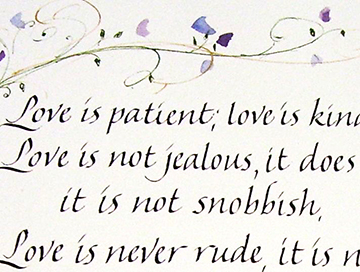 Love is patient; love is kind
Love is not jealous, it does
it is not snobbish,
Love is never rude, it is n